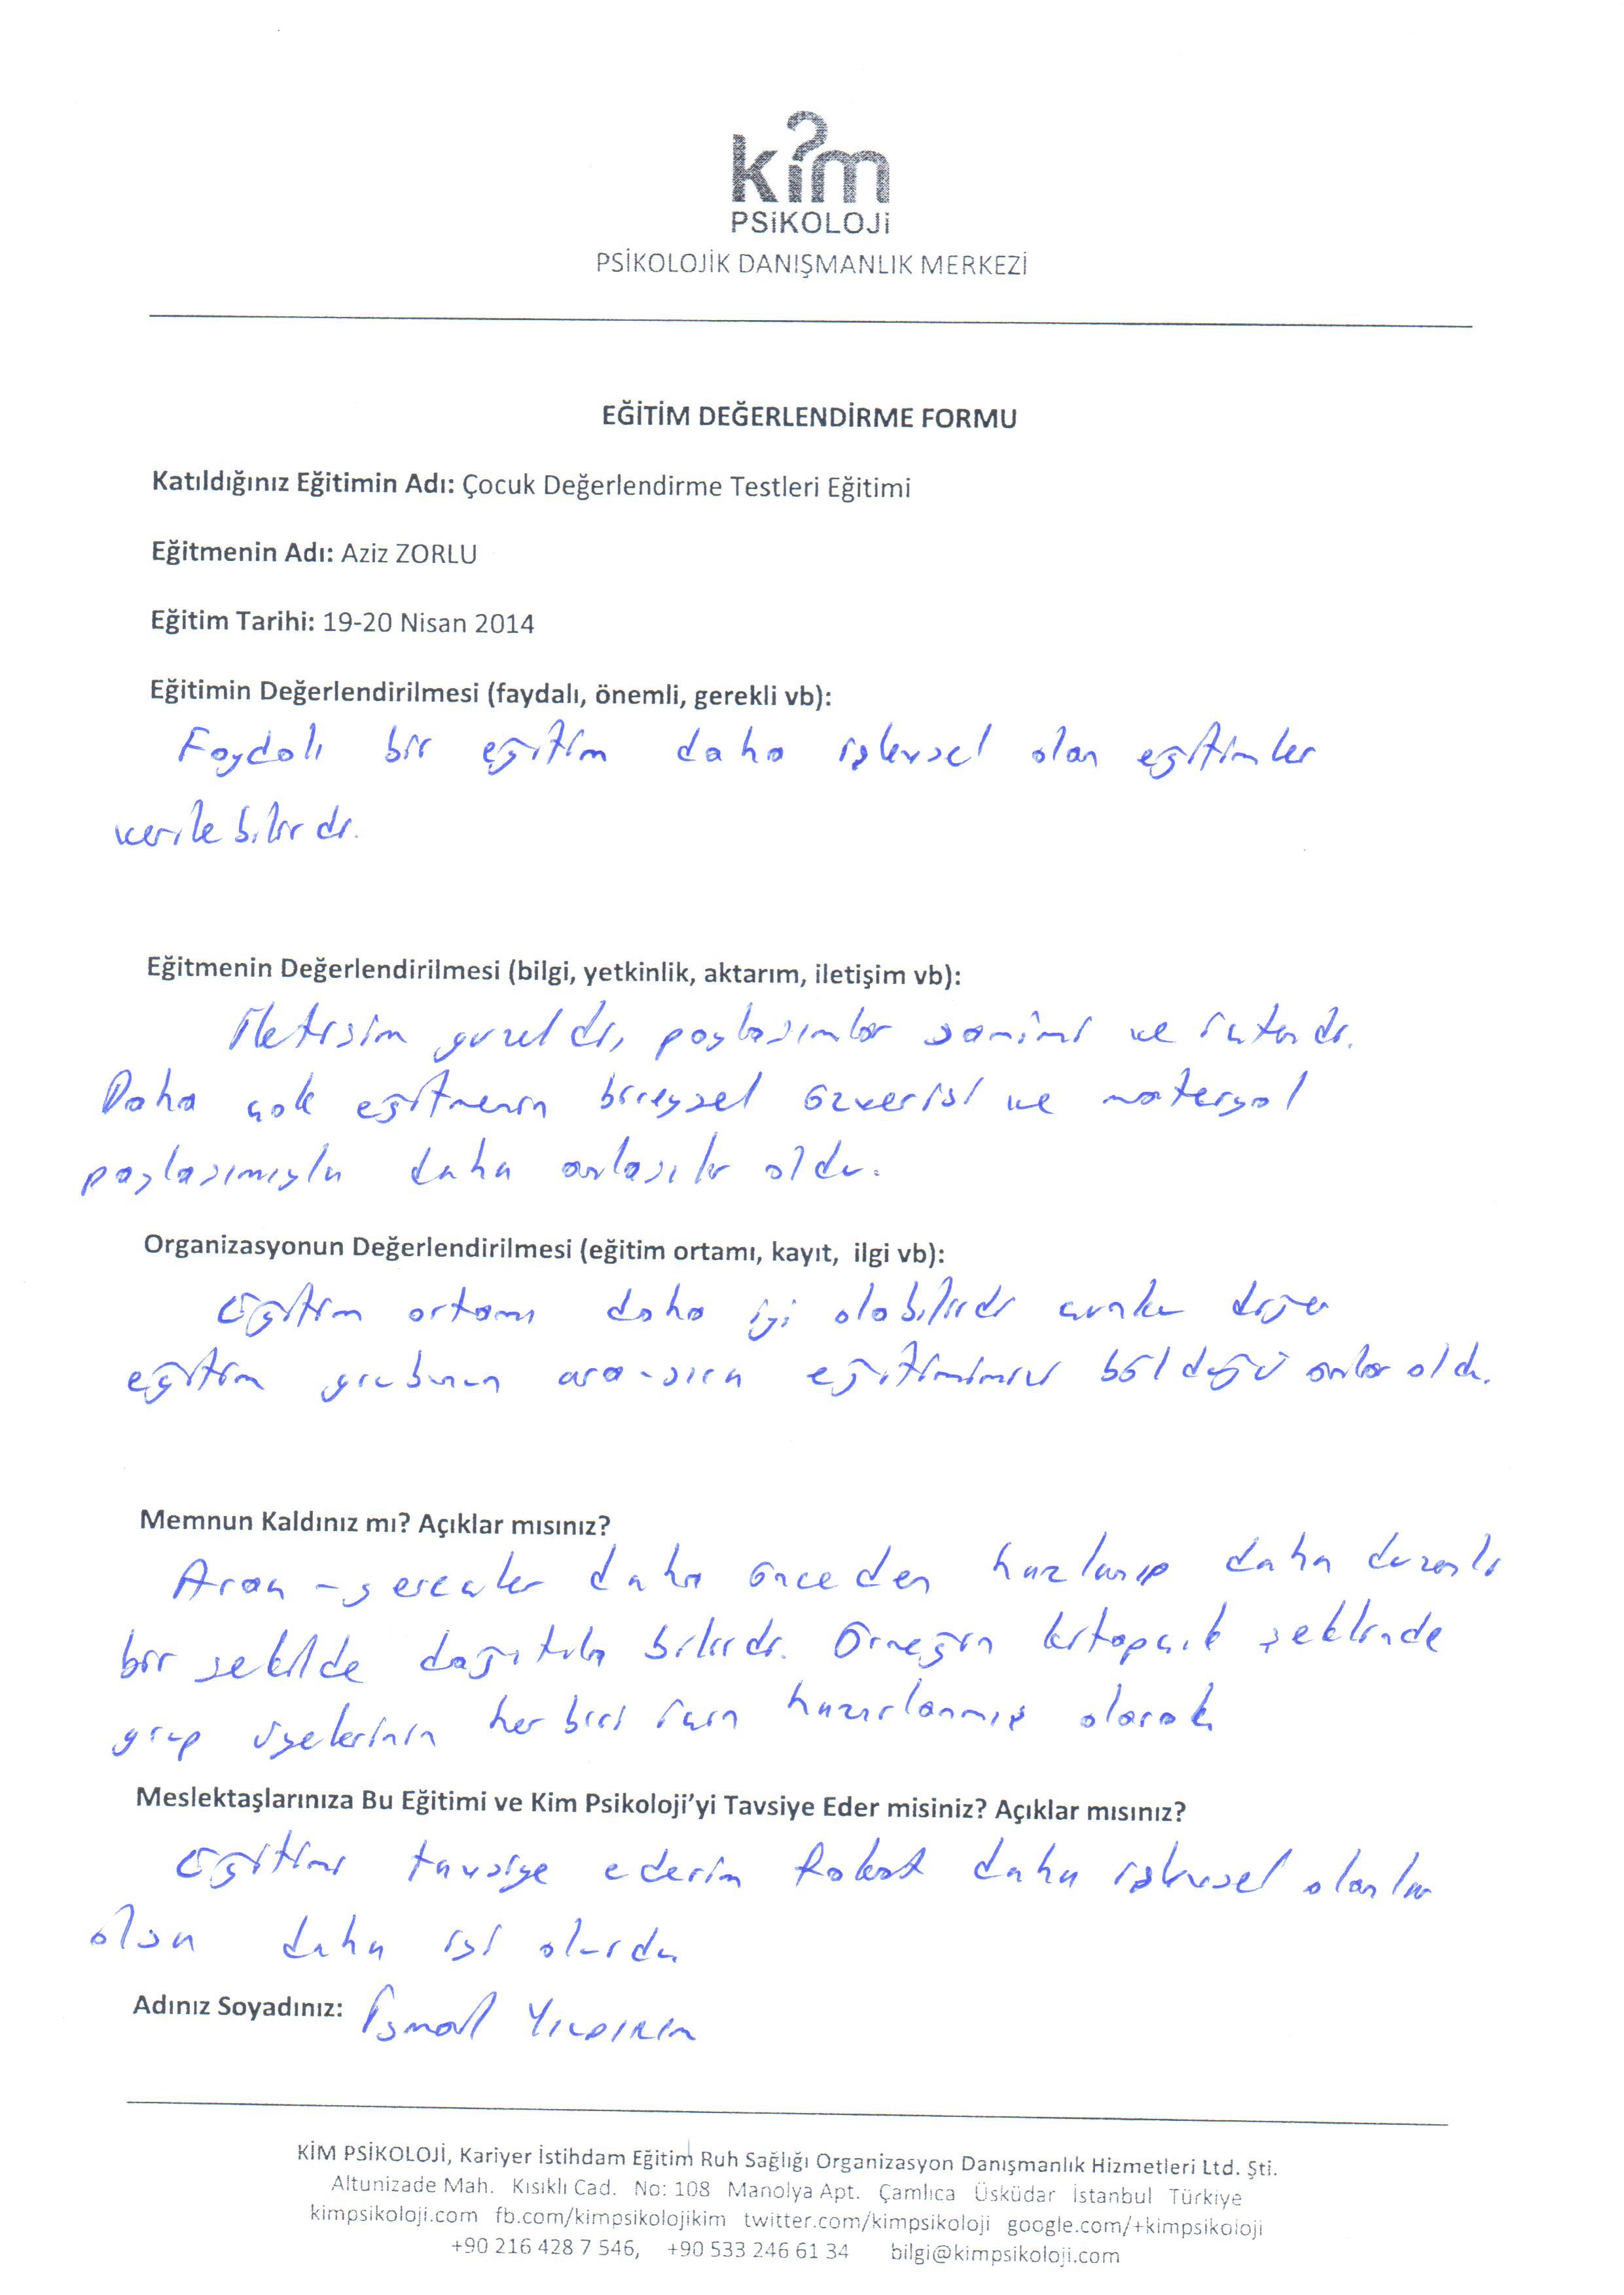 kim
PSiKOLOJi
PSİKOLOJİK DANIŞMANLIK MERKEZİ
EĞİTİM DEĞERLENDİRME FORMU
Katıldığınız Eğitimin Adı: Çocuk Değerlendirme Testleri Eğitimi
Eğitmenin Adı: Aziz ZORLU
Eğitim Tarihi: 19-20 Nisan 2014
Eğitimin Değerlendirilmesi (faydalı, önemli, gerekli vb):
Faydalı bir eğitim daha işlevsel olan eğitimler
verilebilirdi.
Eğitmenin Değerlendirilmesi (bilgi, yetkinlik, aktarım, iletişim vb):
İletisim guzeldi, paylasımlar samimi ve ictendi.
Daha çok eğitmenin bireysel özverisi ve materyal
paylasımıyla daha anlasılır oldu.
Organizasyonun Değerlendirilmesi (eğitim ortamı, kayıt, ilgi vb):
Eğitim ortamı daha iyi olabilirdi çunku diğer
eğitim grubunun ara-sıra eğitimimizi böldüğü anlar oldu.
Memnun Kaldınız mı? Açıklar mısınız?
Arac-gerecler daha önceden hazırlanıp daha duzenli
bir sekilde dağıtılabilirdi. Örneğin kitapçık şeklinde
grup üyelerinin her biri icin hazırlanmış olarak
Meslektaşlarınıza Bu Eğitimi ve Kim Psikoloji'yi Tavsiye Eder misiniz? Açıklar mısınız?
Eğitimi tavsiye ederim fakat daha işlevsel olanlar
olsa daha iyi olurdu
Adınız Soyadınız: İsmail YILDIRIM
KİM PSİKOLOJİ, Kariyer İstihdam Eğitim Ruh Sağlığı Organizasyon Danışmanlık Hizmetleri Ltd. Şti.
Altunizade Mah. Kısıklı Cad. No: 108 Manolya Apt. Çamlıca Üsküdar İstanbul Türkiye
kimpsikoloji.com fb.com/kimpsikolojikim twitter.com/kimpsikoloji google.com/+kimpsikoloji
+90 216 428 7 546, +90 533 246 61 34 bilgi@kimpsikoloji.com